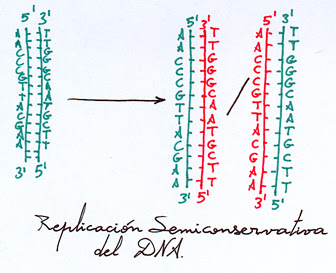 5' 3' 5' 3' 5' 3'
A T A T A T
A T A T A T
C G C G C G
C G C G C G
C G C G C G
G C G C G C
T A T A T A
T A T A T A
A T A T A T
C G C G C G
G C G C G C
A T A T A T
A T A T A T
3' 5' 3' 5' 3' 5'
Replicación Semiconservativa
del DNA.